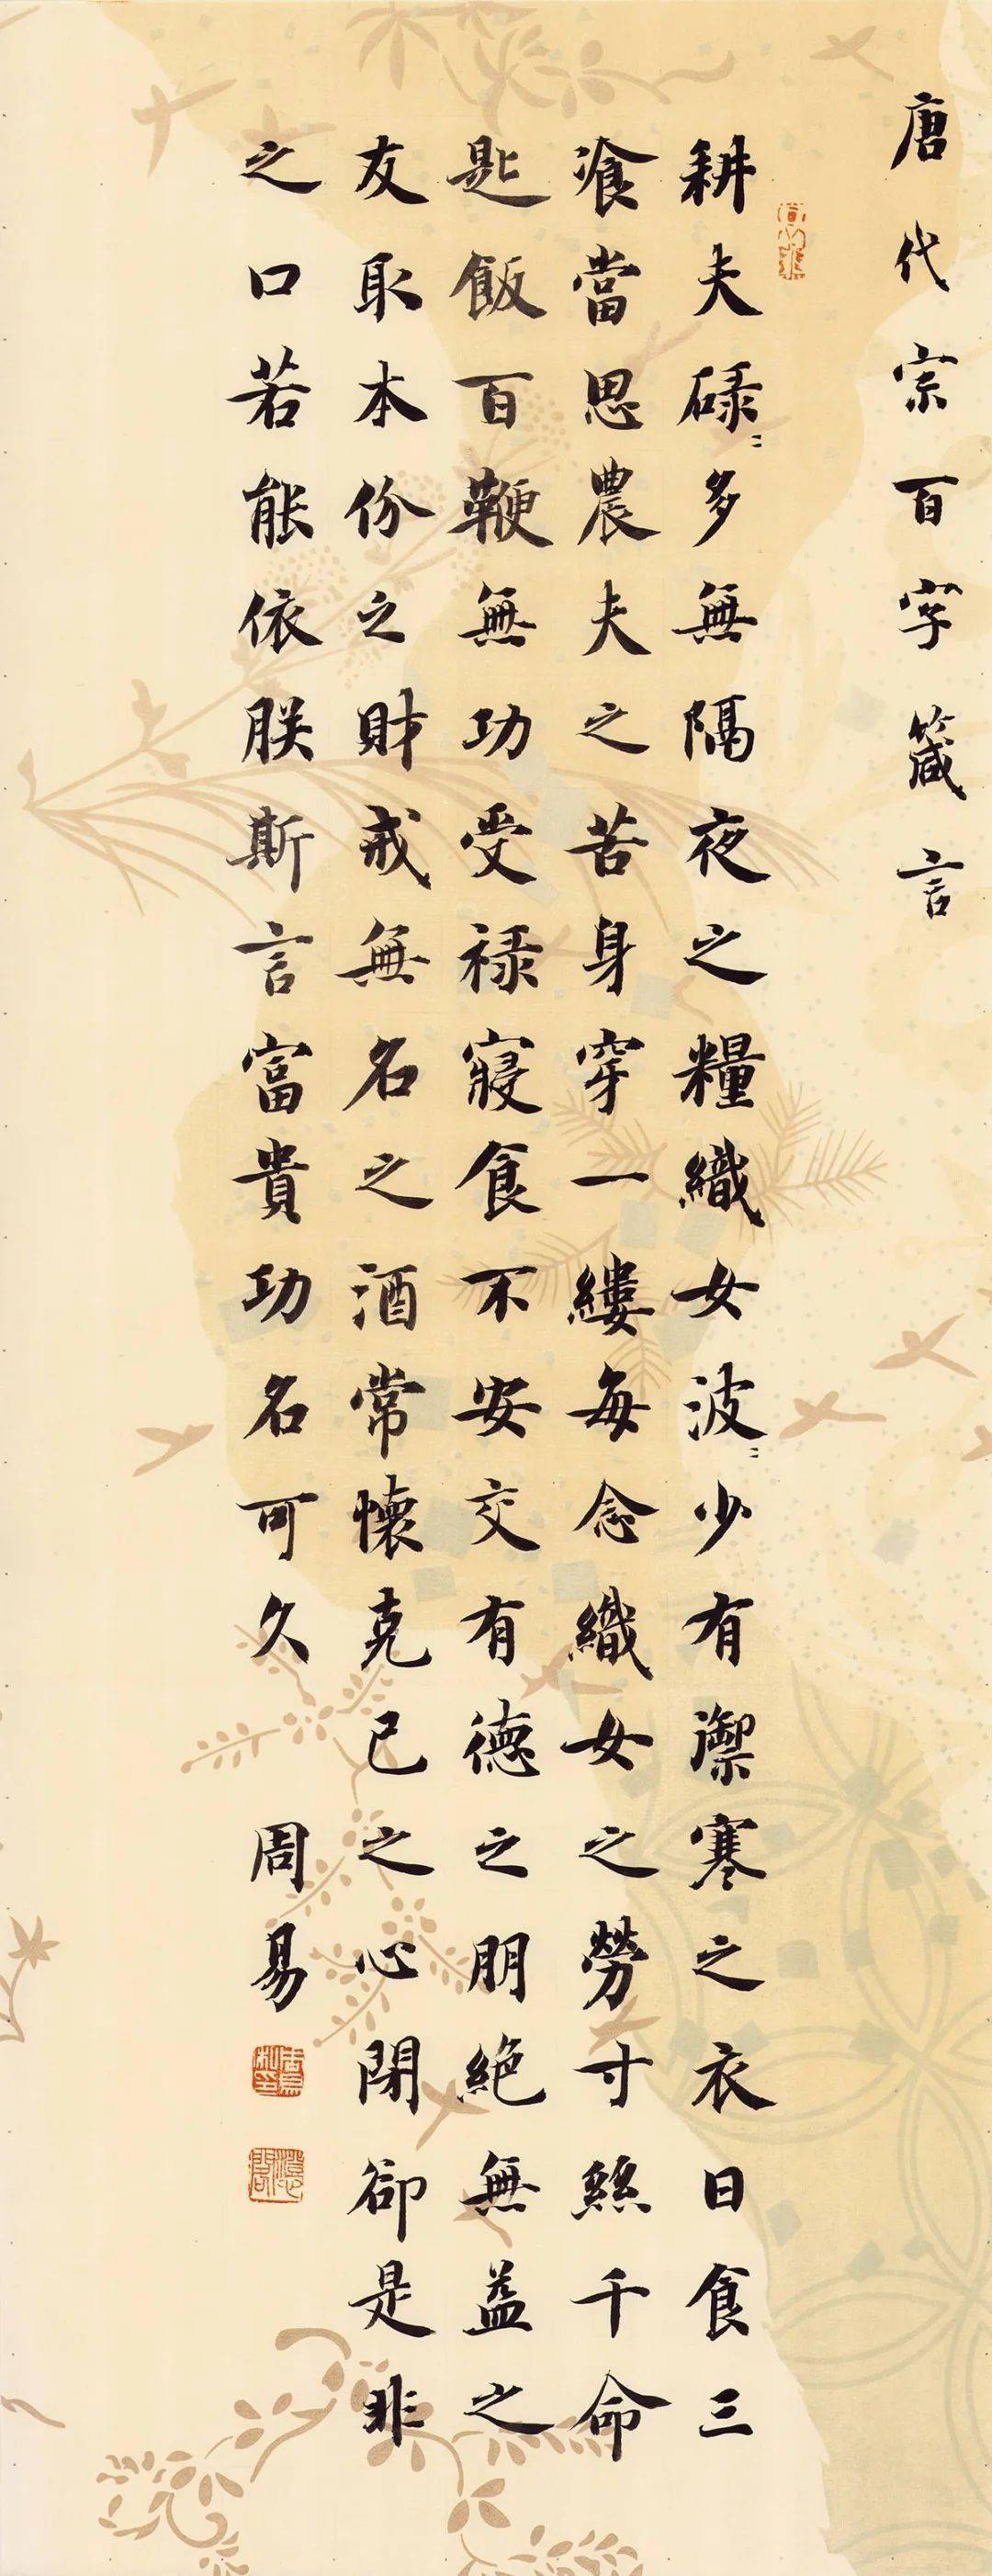 唐代宗百字箴言
耕夫碌〻多無隔夜之糧織女波〻少有禦寒之衣日食三
飡當思農夫之苦身穿一縷每念織女之勞寸絲千命
匙飯百鞭無功受祿寢食不安交有德之朋絕無益之
友取本份之財戒無名之酒常懷克己之心閉卻是非
之口若能依朕斯言富貴功名可久
周易